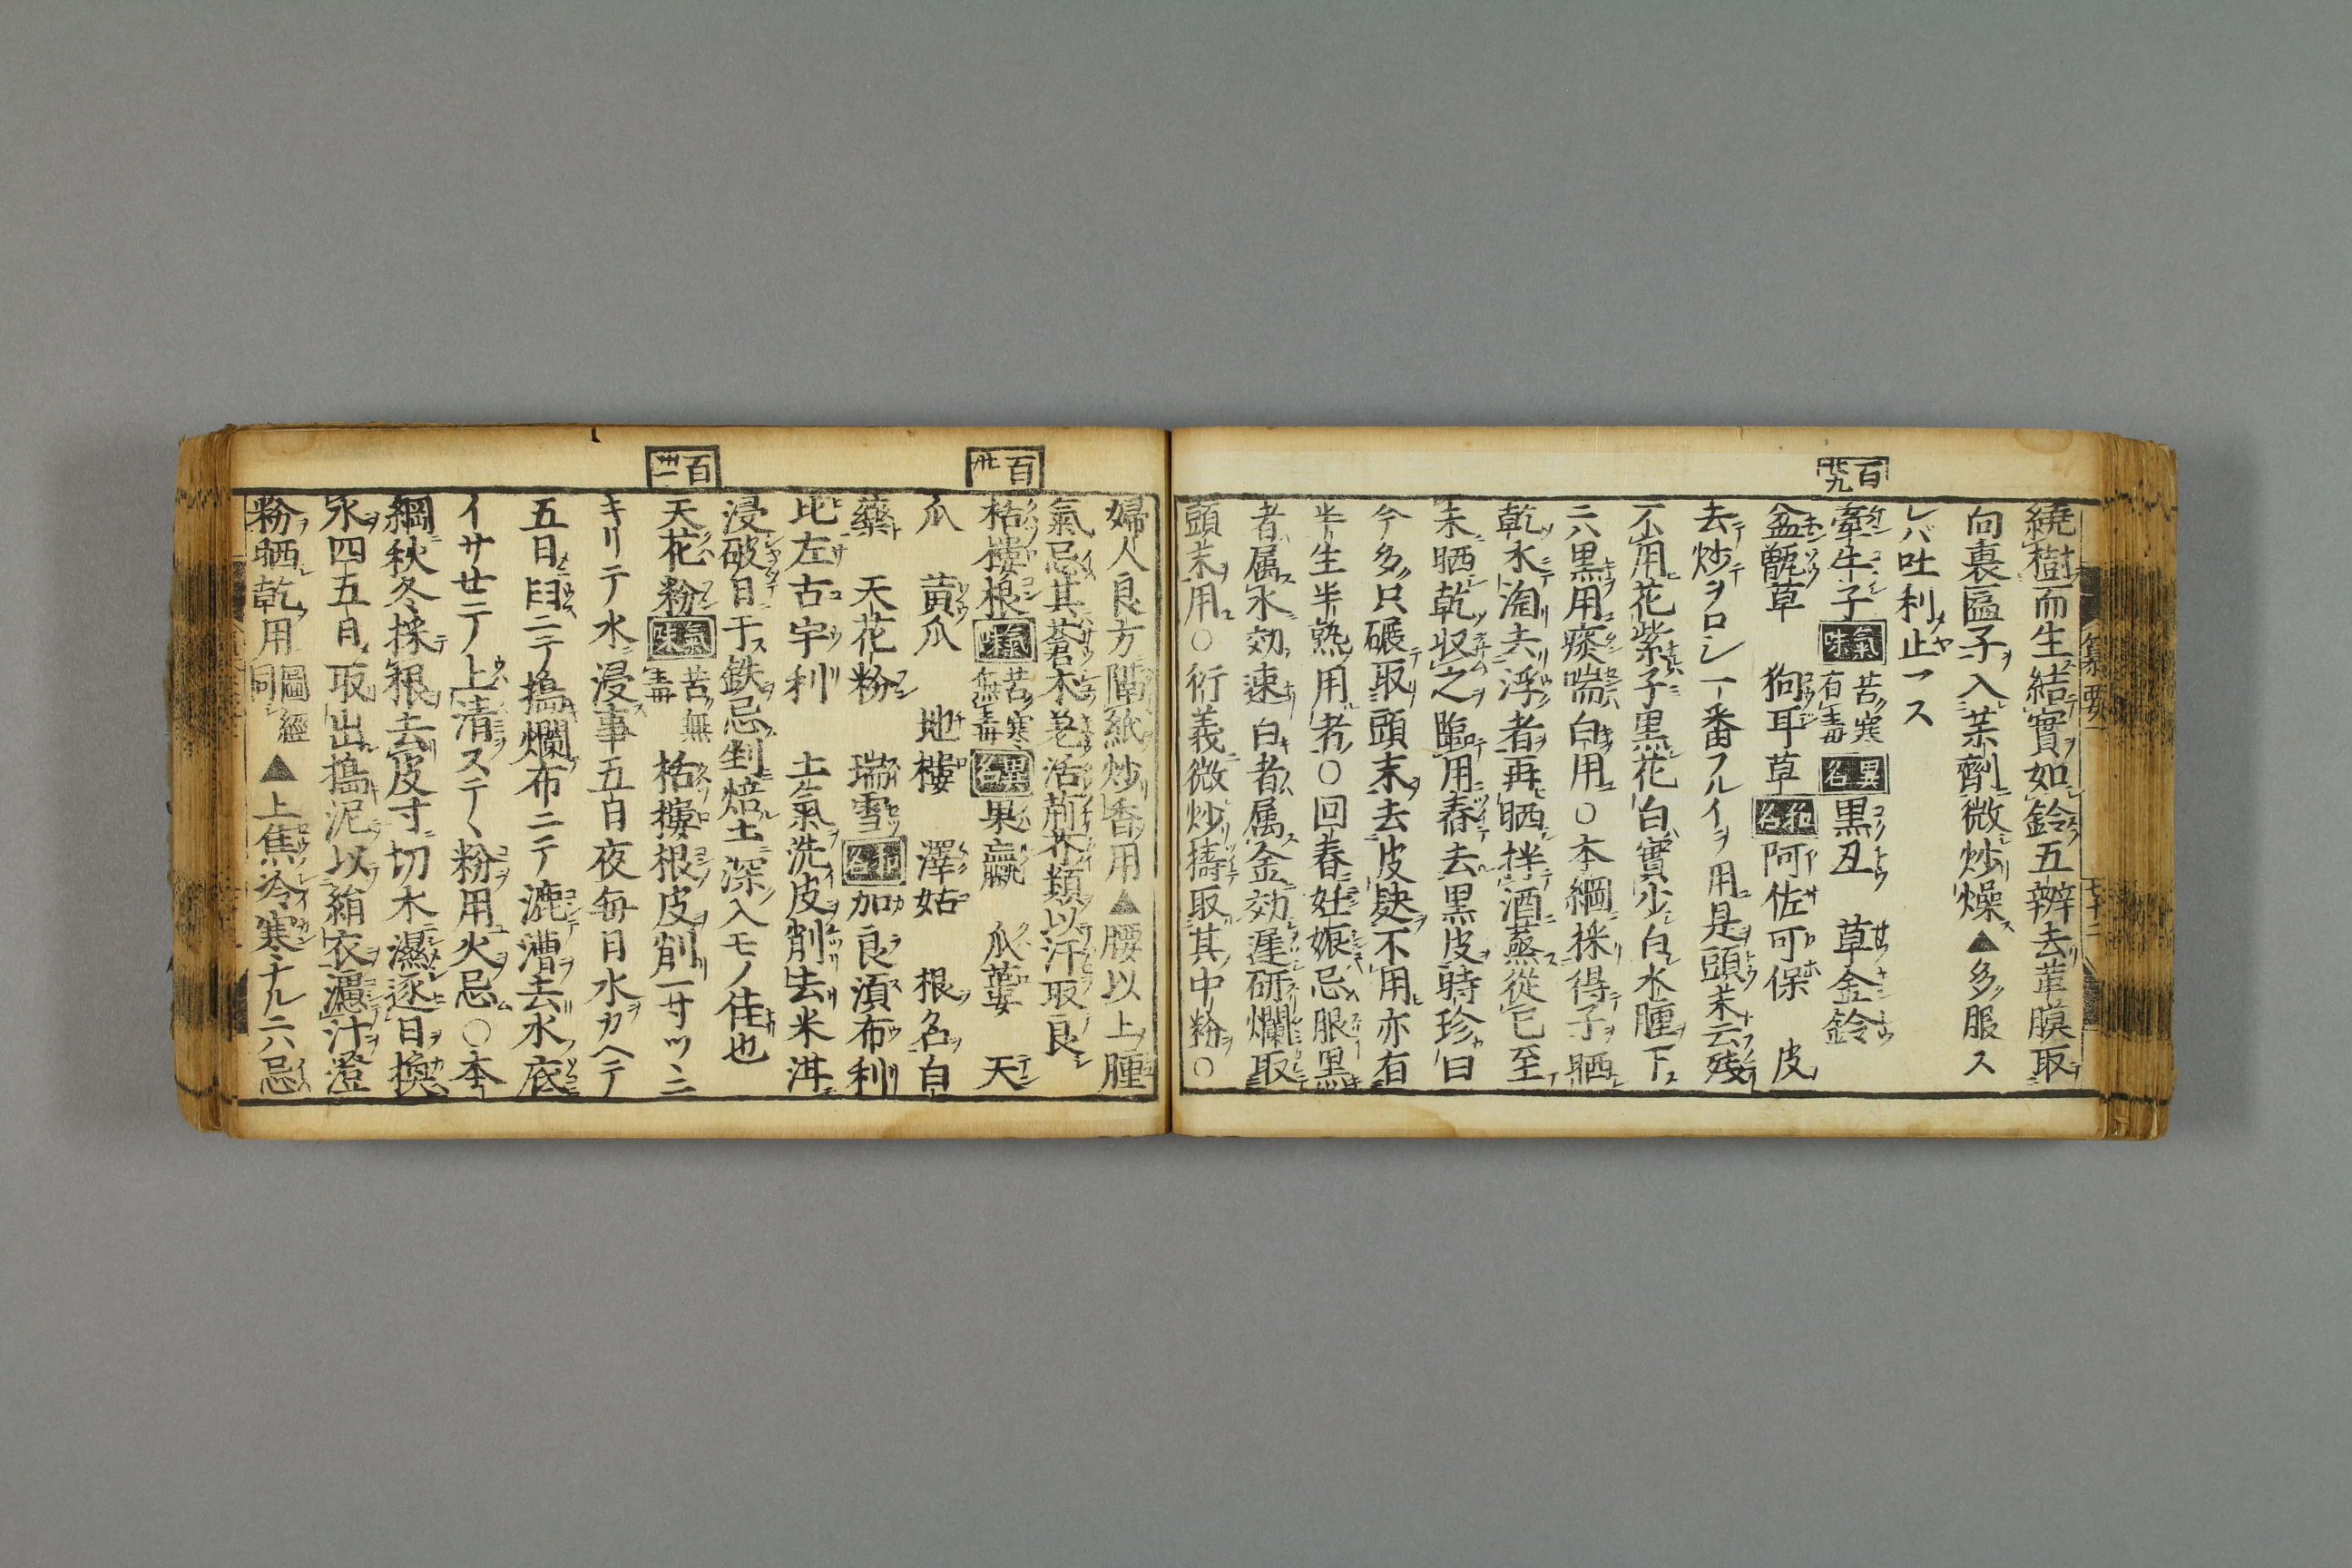 繞樹而生結實如鈴五辨去革膜取
向裏匾子入茱劑微炒燥▲多服ス
レバ吐利止マス
百廿九
牽牛子氣味苦寒有毒異名黒丑 草金鈴
盆甑草 狗耳草和名阿佐可保 皮
去炒ヲロシ一番フルイヲ用是頭茱云殘
不用花紫子黒花白實少白水腫下
ニハ黒用痰喘白用○本綱採得子晒
乾水淘去浮者再晒拌酒蒸從巳至
未晒乾収之臨用舂去黒皮時珍曰
今多只碾取頭末去皮麸不用亦有
半生半熟用者○回春妊娠忌服黒
者属水効速白者属金効遅研爛取
頭茱用○衍義微炒擣取其中粉○
婦人良方隔紙炒香用▲腰以上腫
氣忌其蒼木羗活荊芥類以汗取良
百卅
栝樓根氣味苦寒無毒異名果蠃 瓜蔞 天
瓜 黄瓜 地樓 澤姑 根名白
藥 天花粉 瑞雪和名加良湏布利
比左古宇利 土氣洗皮削去米泔
浸破日干ス鉄忌剉焙土深入モノ佳也
百卅一
天花粉氣味苦無毒 栝摟根皮削一寸ツヽニ
キリテ水浸事五日夜毎日水カヘテ
五日臼ニテ搗爛布ニテ漉漕去水底
イサセテ上清ステヽ粉用火忌○本
綱秋冬採根去皮寸切水濕逐日換
水四五日取出搗泥以絹衣濾汁澄
粉晒乾用圖經同▲上焦冷寒ナルニハ忌